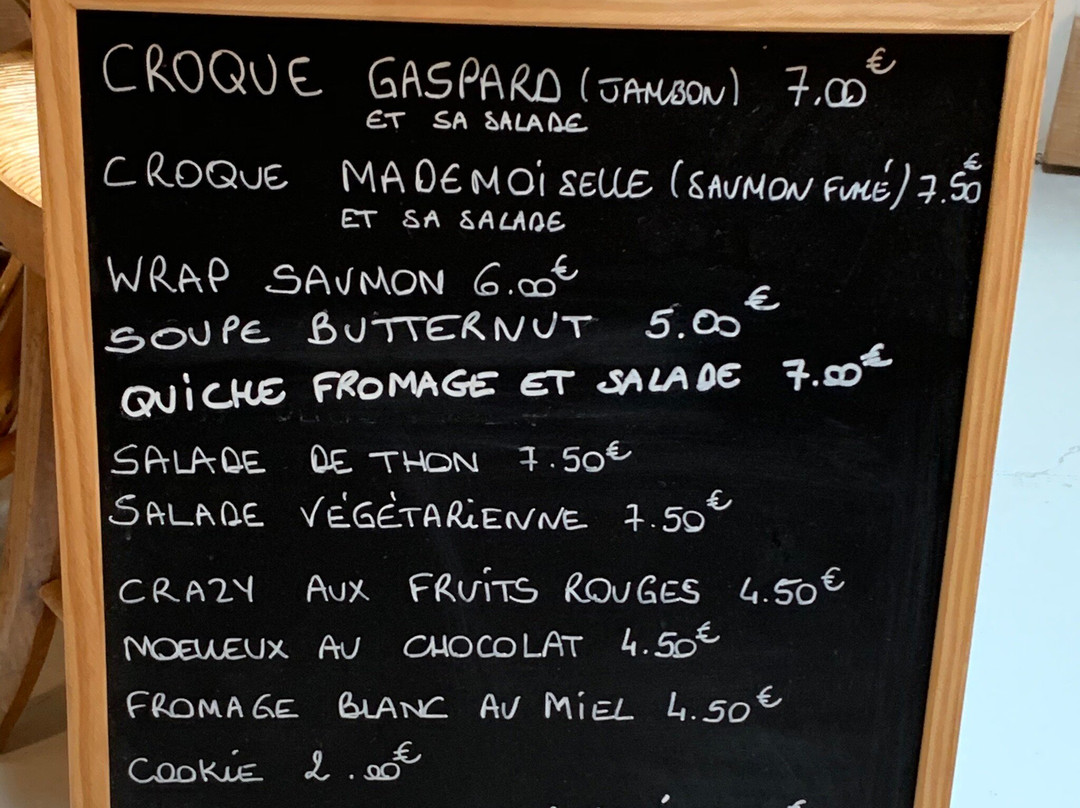 CROQUE GASPARD (JAMBON) 7.00€
ET SA SALADE
CROQUE MADEMOiSELLE (SAUMON FUMÉ) 7.50€
ET SA SALADE
WRAP SAUMON 6.00€
SOUPE BUTTERNUT 5.00€
QUiCHE FROMAGE ET SALADE 7.00€
SALADE DE THON 7.50€
SALADE VÉGÉTARiENNE 7.50€
CRAZY AUX FRUiTS ROUGES 4.50€
MOELLEUX AU CHOCOLAT 4.50€
FROMAGE BLANC AU MiEL 4.50€
COOKiE 2.00€